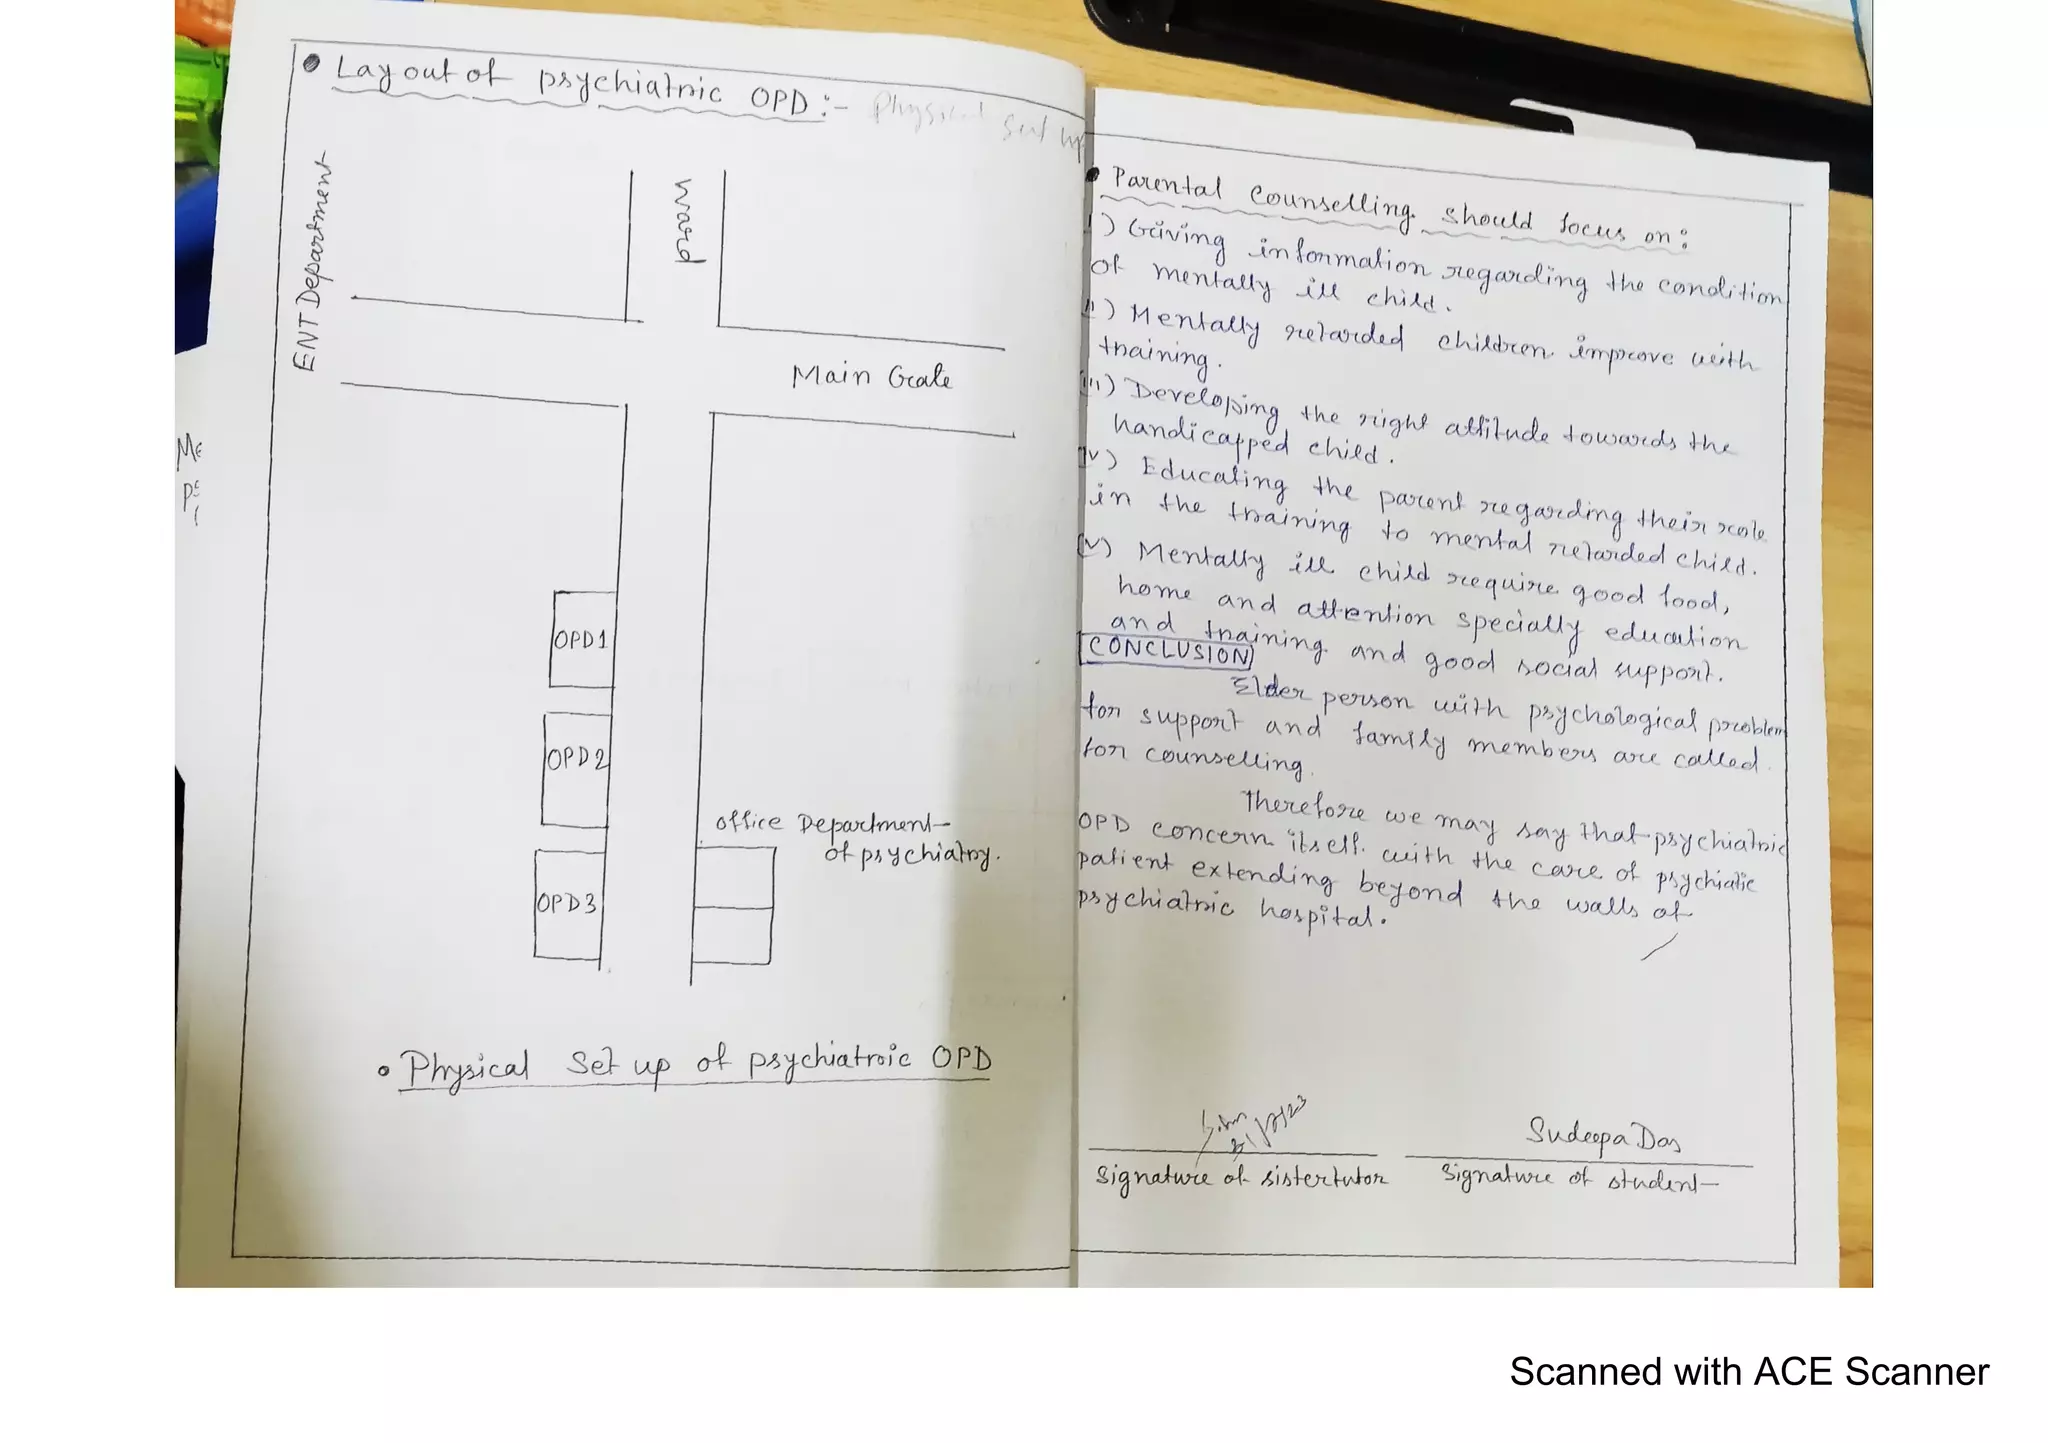 • Layout of psychiatric OPD :- Physical set up
ENT Department
Ward
Main Gate
OPD1
OPD2
OPD3
Office Department
of psychiatry.
• Physical Set up of psychiatric OPD
• Parental Counselling should focus on :
i) Giving information regarding the condition
of mentally ill child.
ii) Mentally retarded children improve with
training.
iii) Developing the right attitude towards the
handicapped child.
iv) Educating the parent regarding their role
in the training to mental retarded child.
v) Mentally ill child require good food,
home and attention specially education
and training and good social support.
CONCLUSION
Elder person with psychological problem
for support and family members are called
for counselling.
Therefore we may say that psychiatric
OPD concern itself with the care of psychiatic
patient extending beyond the walls of
psychiatric hospital.
Sudeepa Das
Signature of sistertutor
Signature of student
Scanned with ACE Scanner